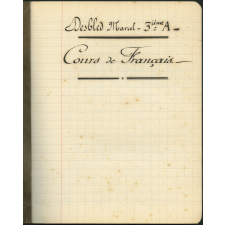 Desbled Marcel - 3ième A -
Cours de Français -